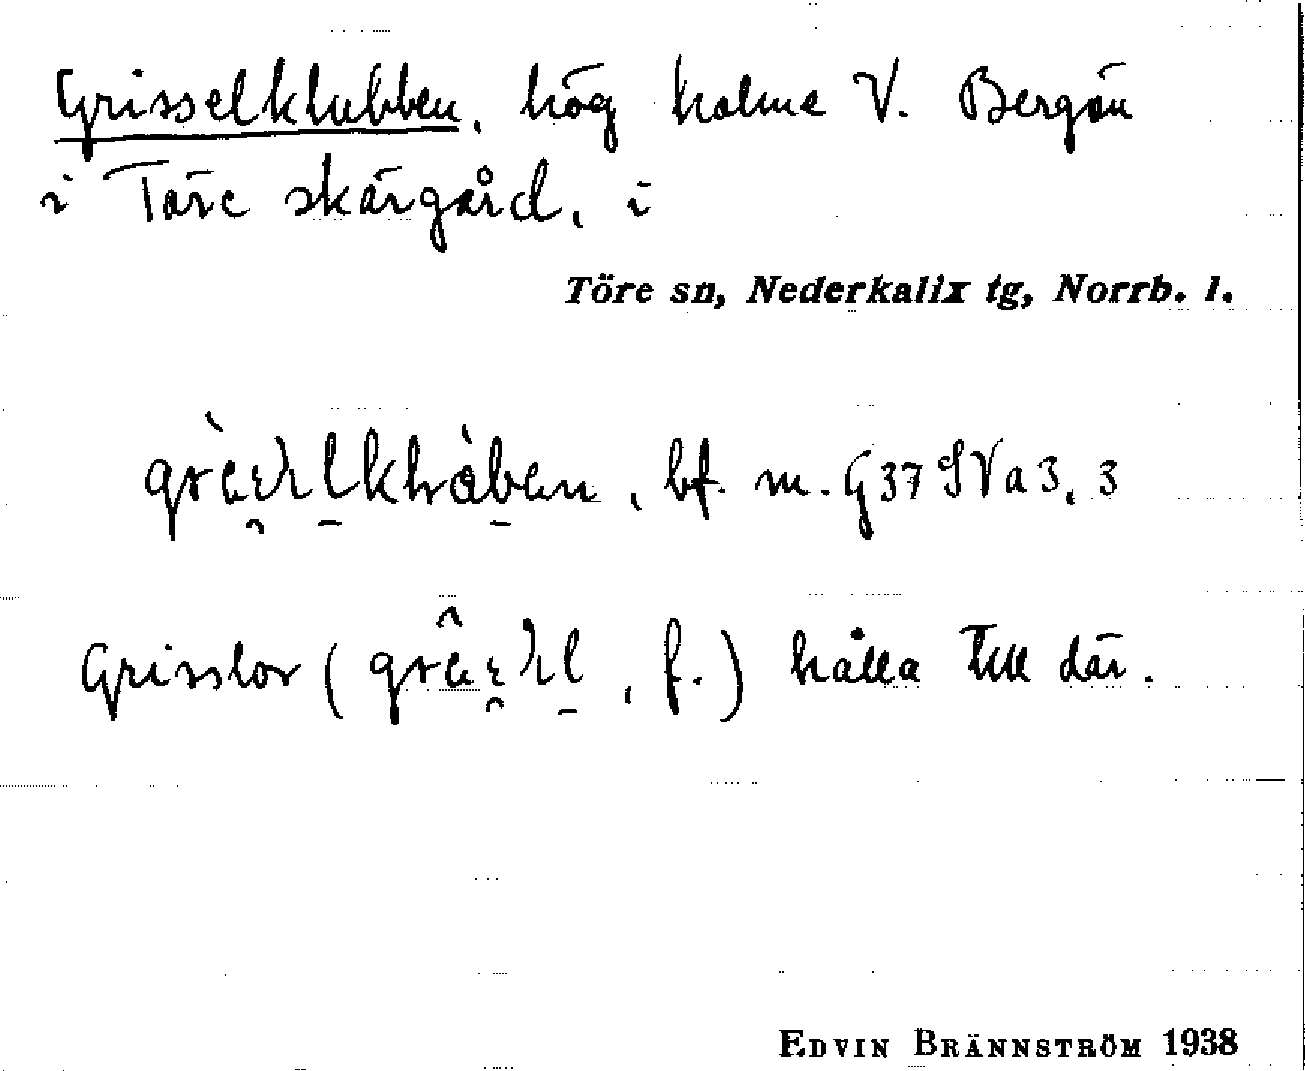 Grisselklubben, hög holme V. Bergön
i Töre skärgård, i
Töre sn, Nederkalix tg, Norrb. l.
, bf. m. G 37 SV a 3, 3
Grisslor ( , f.) hålla till där.
EDVIN BRÄNNSTRÖM 1938